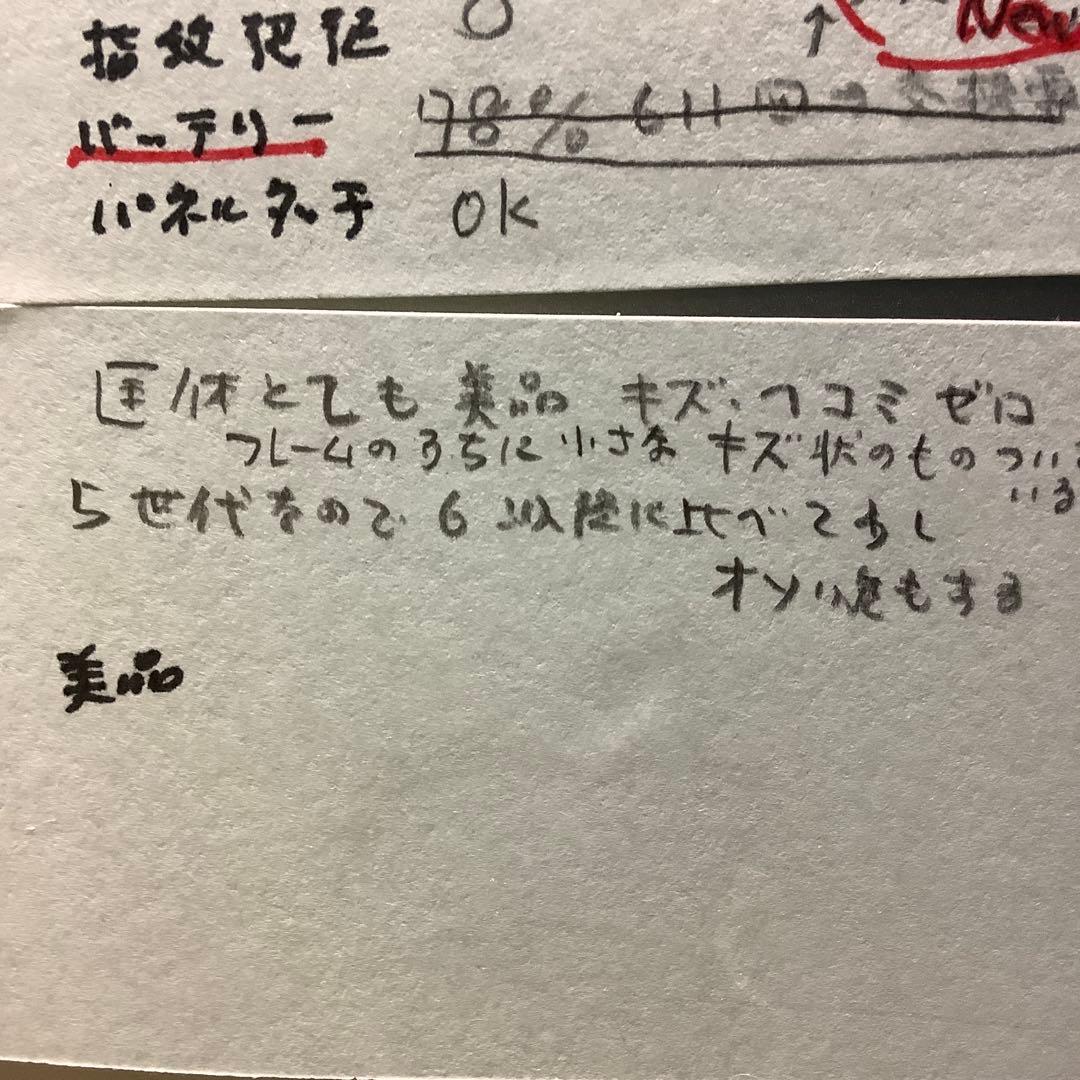 指紋認証 O ↑ New
バッテリー 78% 611回→
パネルタッチ OK
匡体とても美品 キズ、ヘコミ ゼロ
フレームのうちに小さな キズ状のものついて
いる
5世代なので 6以降に比べて少し
オソい気もする
美品